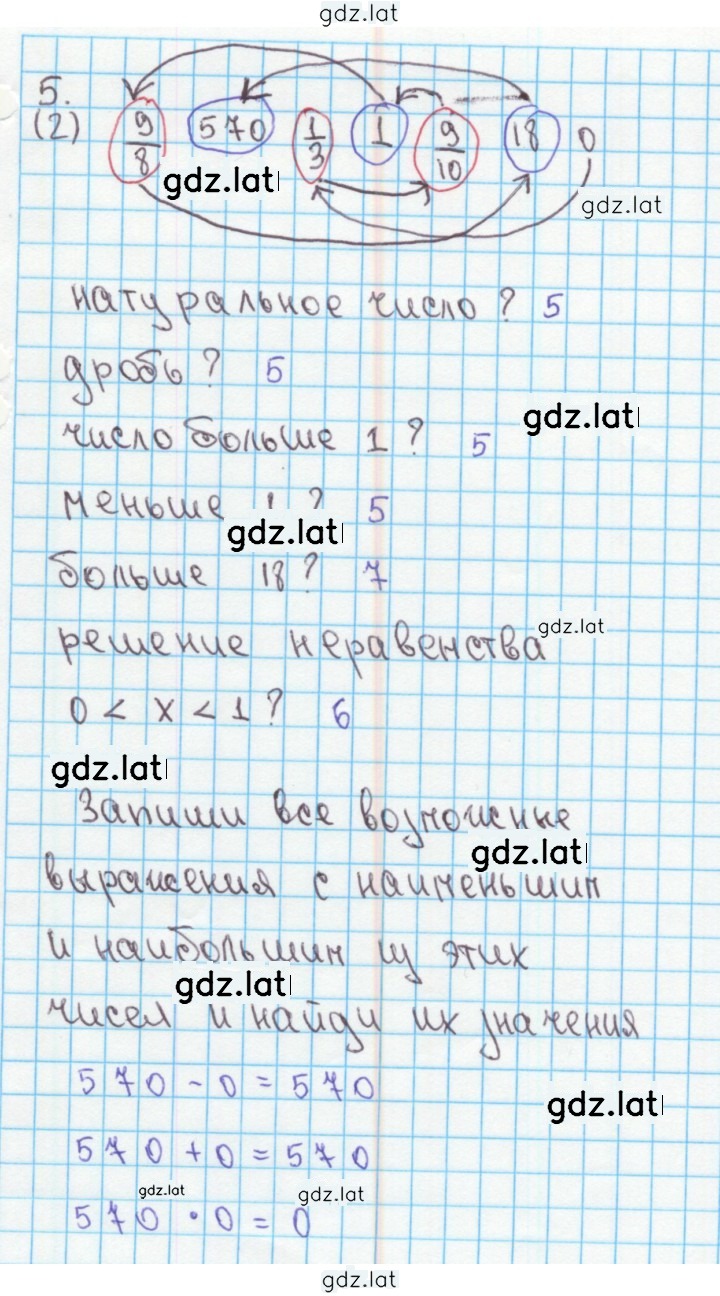 gdz.lat
5.
(2) 9/8 570 1/3 1 9/10 18 0
gdz.lat
gdz.lat
натуральное число? 5
дробь? 5
gdz.lat
число больше 1? 5
меньше 1? 5
gdz.lat
больше 18? 7
gdz.lat
решение неравенства
0 < x < 1? 6
gdz.lat
Запиши все возможные
gdz.lat
выражения с наименьшим
и наибольшим из этих
gdz.lat
чисел и найди их значения
570 - 0 = 570
gdz.lat
570 + 0 = 570
gdz.lat
gdz.lat
570 · 0 = 0
gdz.lat